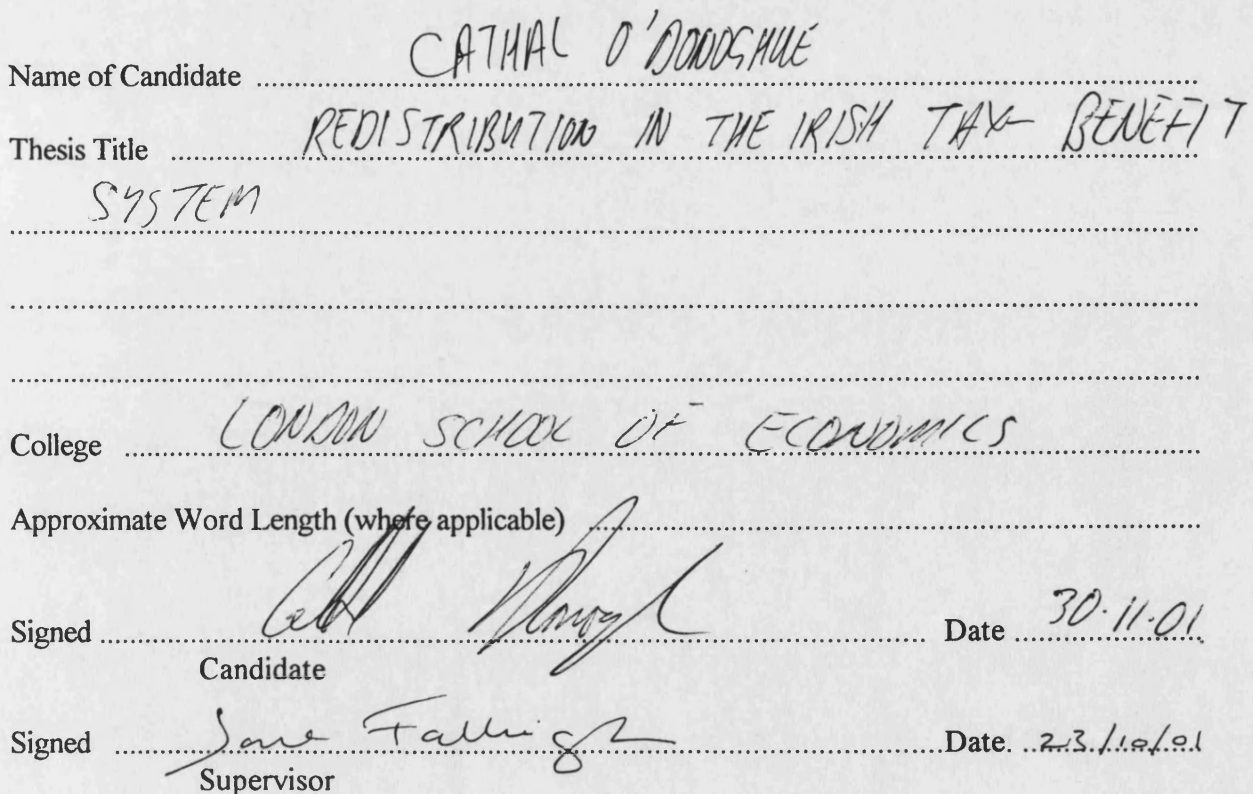 Name of Candidate CATHAL O'DONOGHUE
Thesis Title REDISTRIBUTION IN THE IRISH TAX- BENEFIT
SYSTEM
College LONDON SCHOOL OF ECONOMICS
Approximate Word Length (where applicable)
Signed Date 30.11.01
Candidate
Signed Jane Date 23/10/01
Supervisor